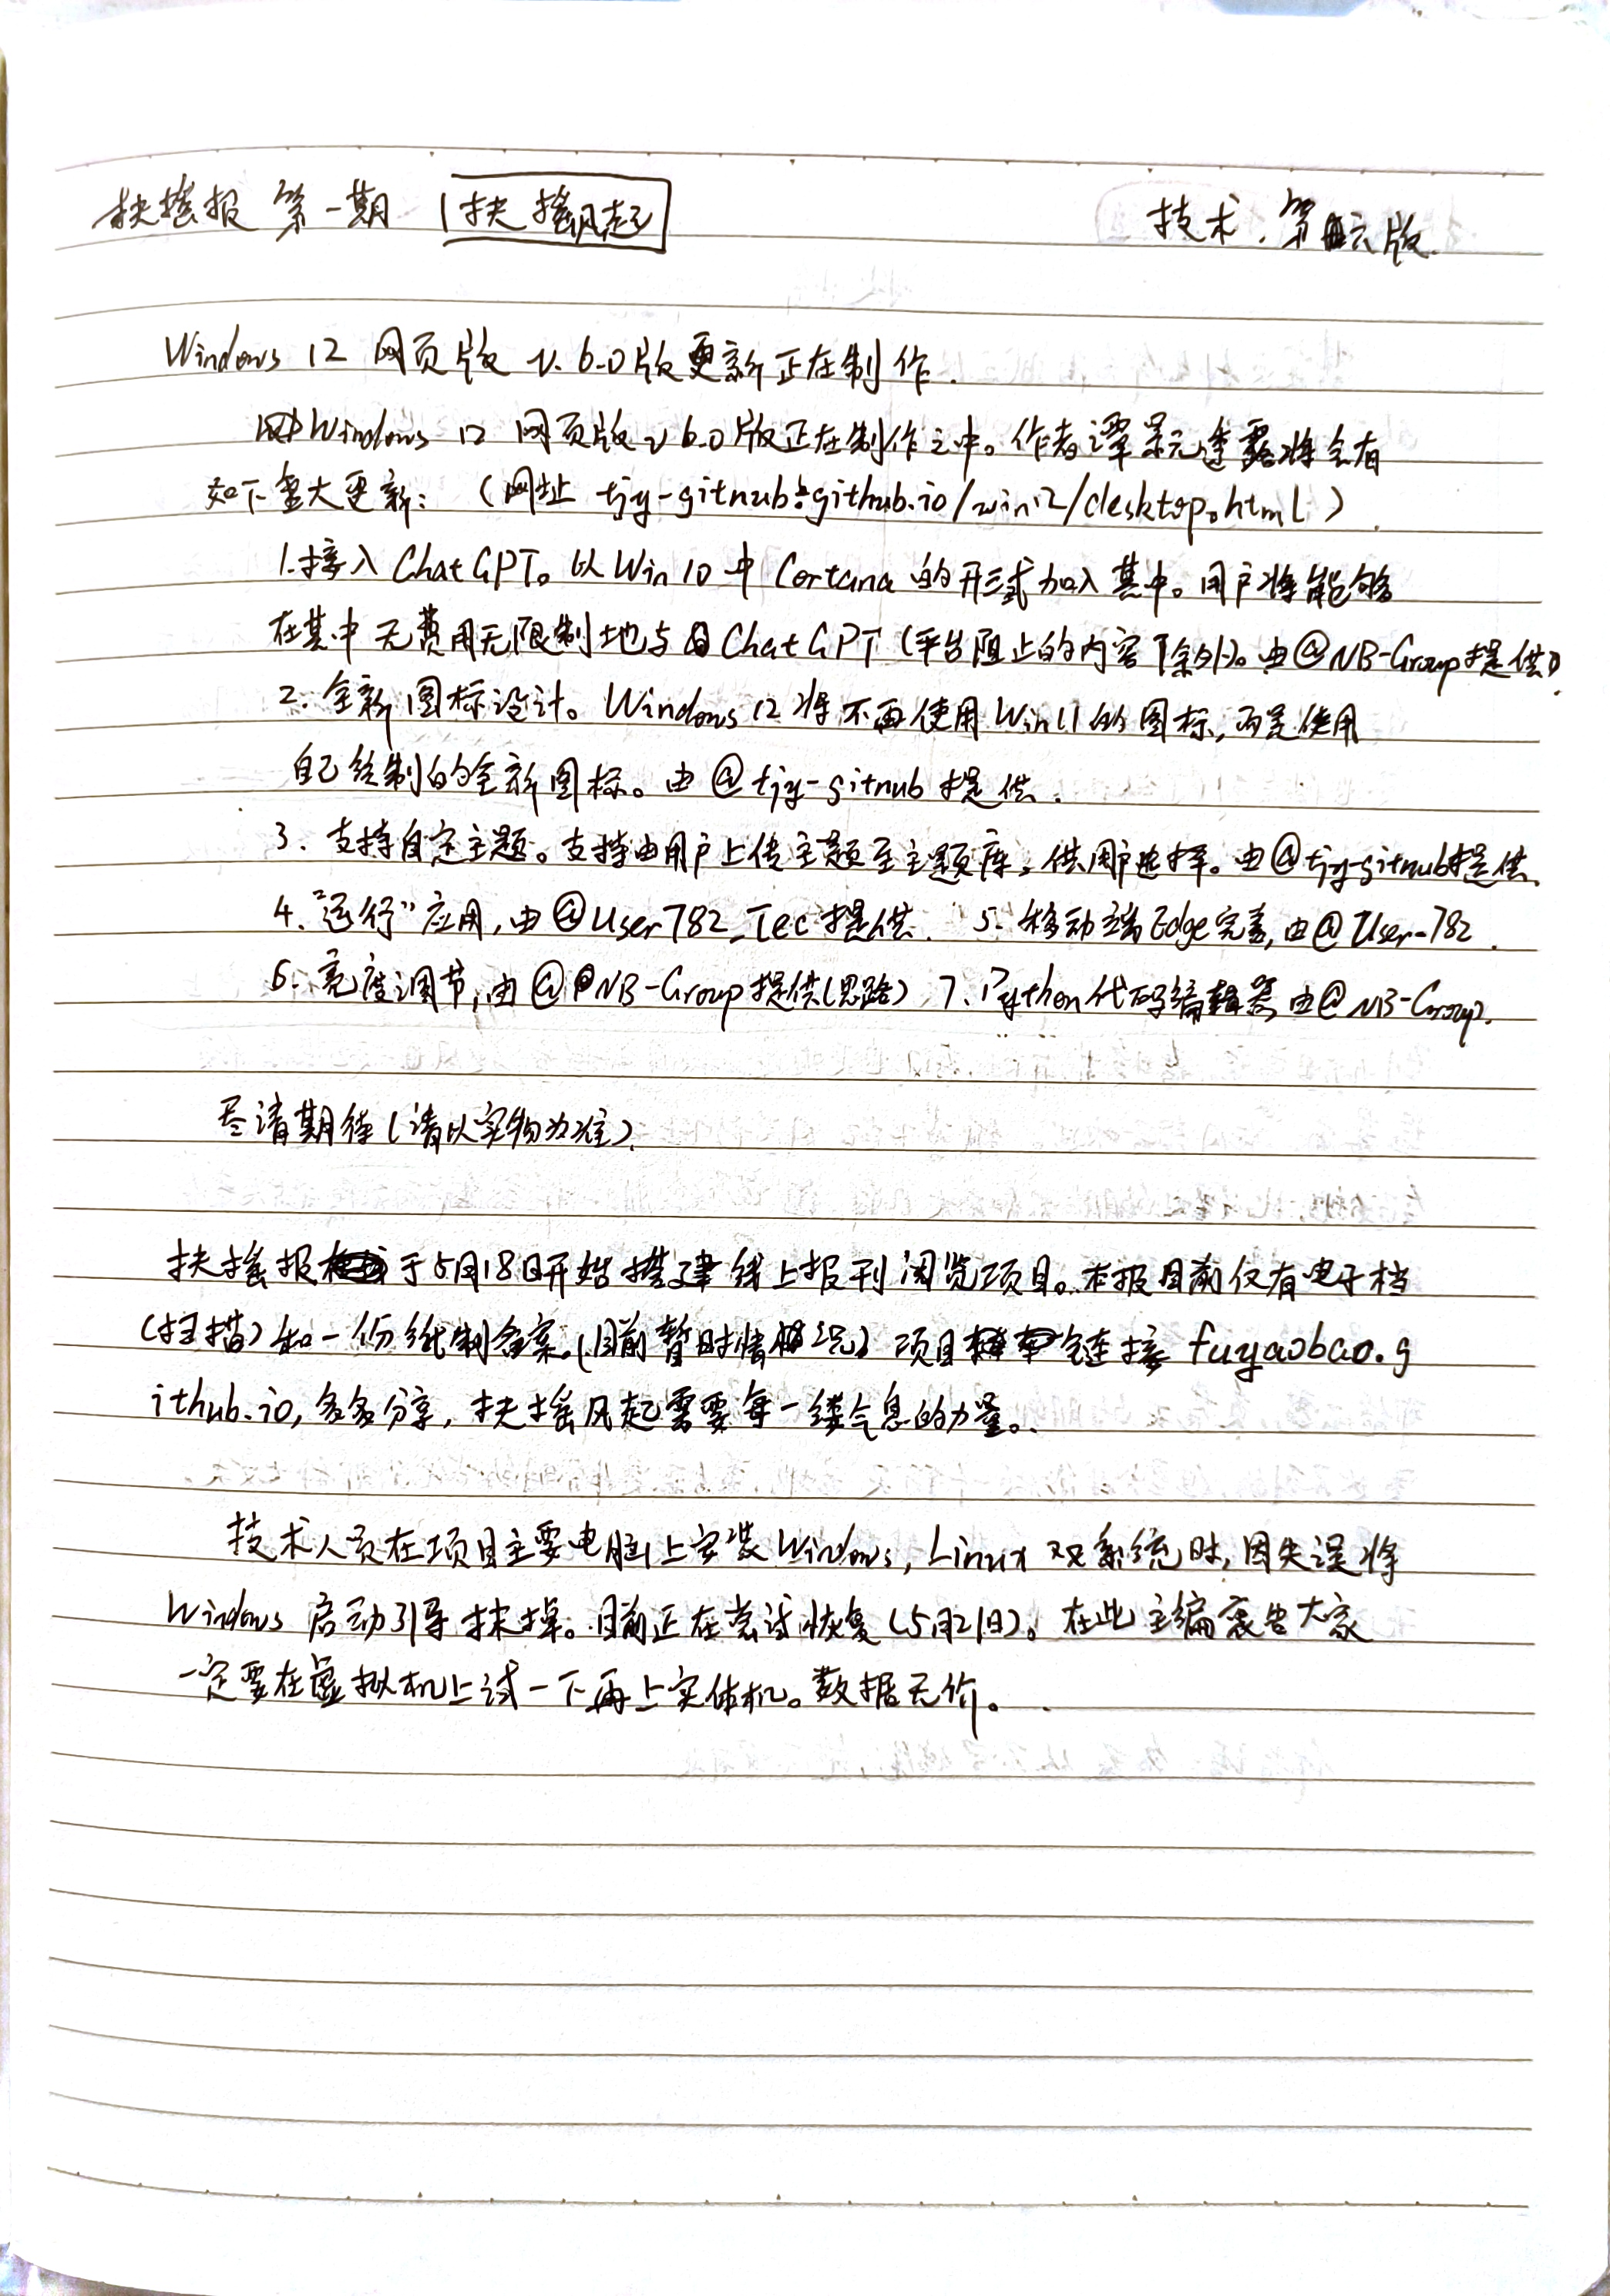 扶摇报 第一期 扶摇风起 技术.第六版.
Windows 12 网页版 v.6.0版更新正在制作.
Windows 12 网页版 v 6.0版正在制作之中。作者谭景元透露将会有
如下重大更新:(网址 tjy-gitnub.github.io/win12/desktop.html)
1.接入ChatGPT。以Win10中Cortana的形式加入其中。用户将能够
在其中无费用无限制地与ChatGPT(平台阻止的内容除外)。由@NB-Group提供)
2.全新图标设计。Windows 12将不再使用Win11的图标,而是使用
自己绘制的全新图标。由@tjy-gitnub提供.
3.支持自定主题。支持由用户上传主题至主题库,供用户选择。由@tjy-gitnub提供.
4."运行"应用,由@User782_Tec提供. 5.移动端Edge完善,由@User-782.
6.亮度调节,由@NB-Group提供(思路) 7.Python代码编辑器,由@NB-Group.
尽请期待(请以实物为准).
扶摇报于5月18日开始搭建线上报刊阅览项目。本报目前仅有电子档
(扫描)和一份纸制备案。(目前暂时情况)项目链接fuyaobao.g
ithub.io,多多分享,扶摇风起需要每一缕气息的力量。
技术人员在项目主要电脑上安装Windows,Linux双系统时,因失误将
Windows启动引导抹掉。目前正在尝试恢复(5月21日)。在此主编哀告大家
一定要在虚拟机上试一下再上实体机。数据无价。